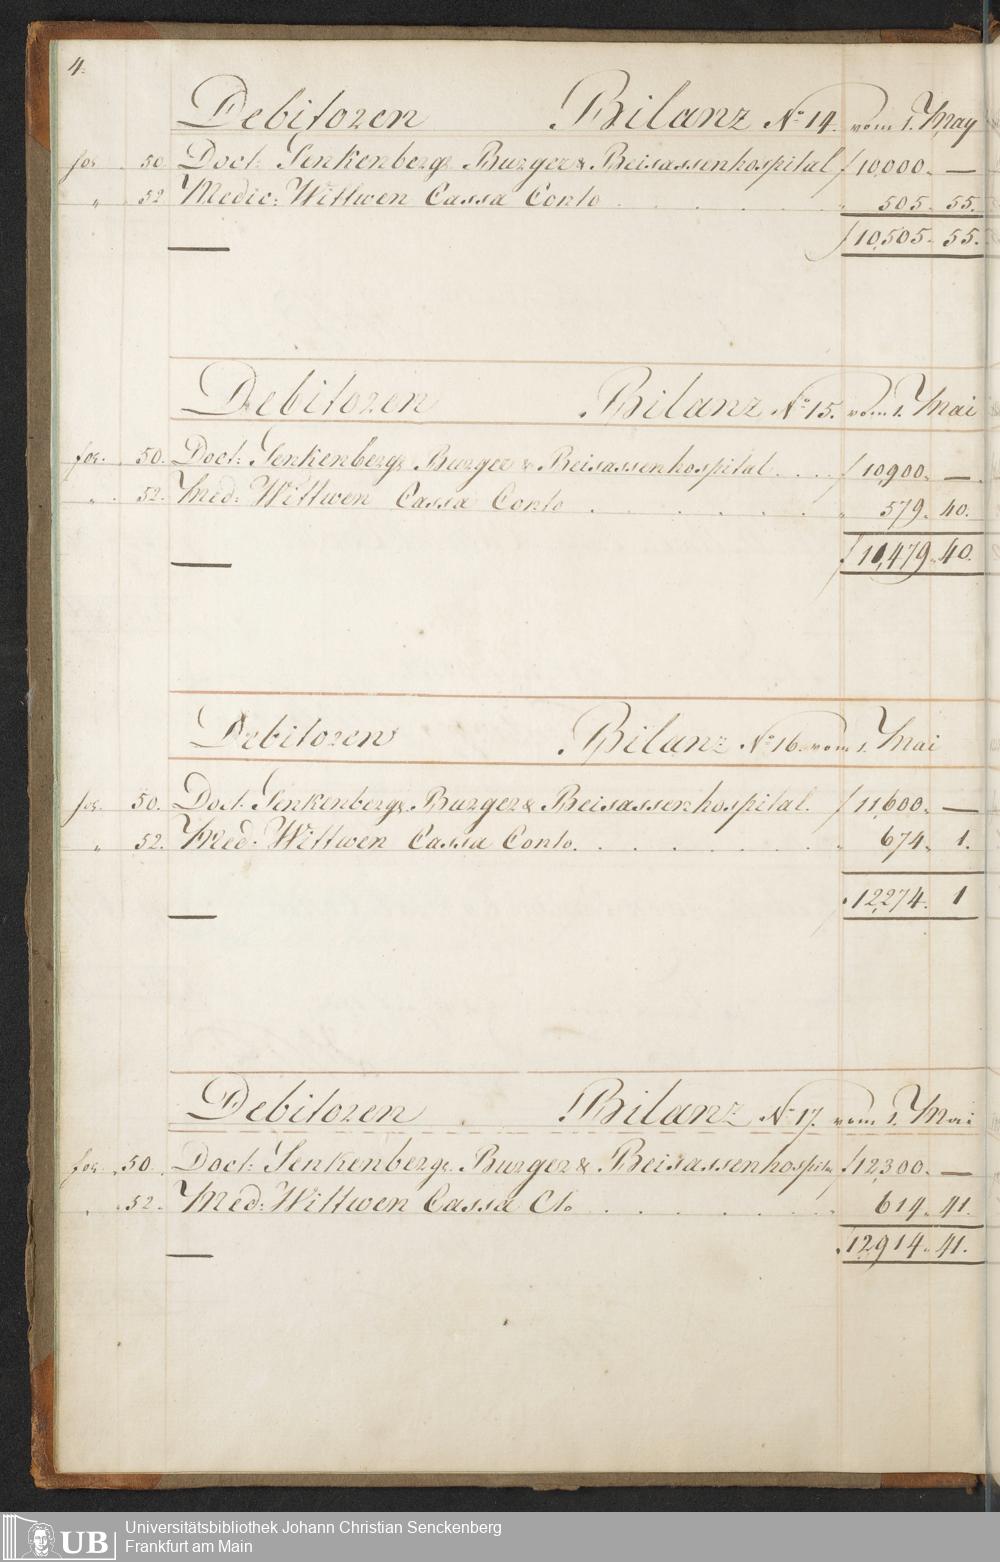 4.
Debitoren Bilanz No 14. vom 1. May
fol. 50. Doct: Senkenbergs Burger & Beisassenhospital f 10,000. —
" 52. Medic: Wittwen Cassa Conto . . . . . " 505. 55.
f 10,505. 55.
Debitoren Bilanz No 15. vom 1. Mai
fol. 50. Doct: Senkenbergs Burger & Beisassenhospital . . . . f 10,900. —
" 52. Med: Wittwen Cassa Conto . . . . . . " 579. 40.
f 11,479. 40.
Debitoren Bilanz No 16. vom 1. Mai
fol. 50. Doct. Senkenbergs Burger & Beisassenhospital. f 11,600. —
" 52. Med: Wittwen Cassa Conto. . . . . . . " 674. 1.
12,274. 1
Debitoren Bilanz No 17. vom 1. Mai
fol. 50. Doct: Senkenbergs Burger & Beisassenhospital f 12,300. —
" 52. Med: Wittwen Cassa Cto . . . . . . " 614. 41.
12,914. 41.
UB Universitätsbibliothek Johann Christian Senckenberg
Frankfurt am Main